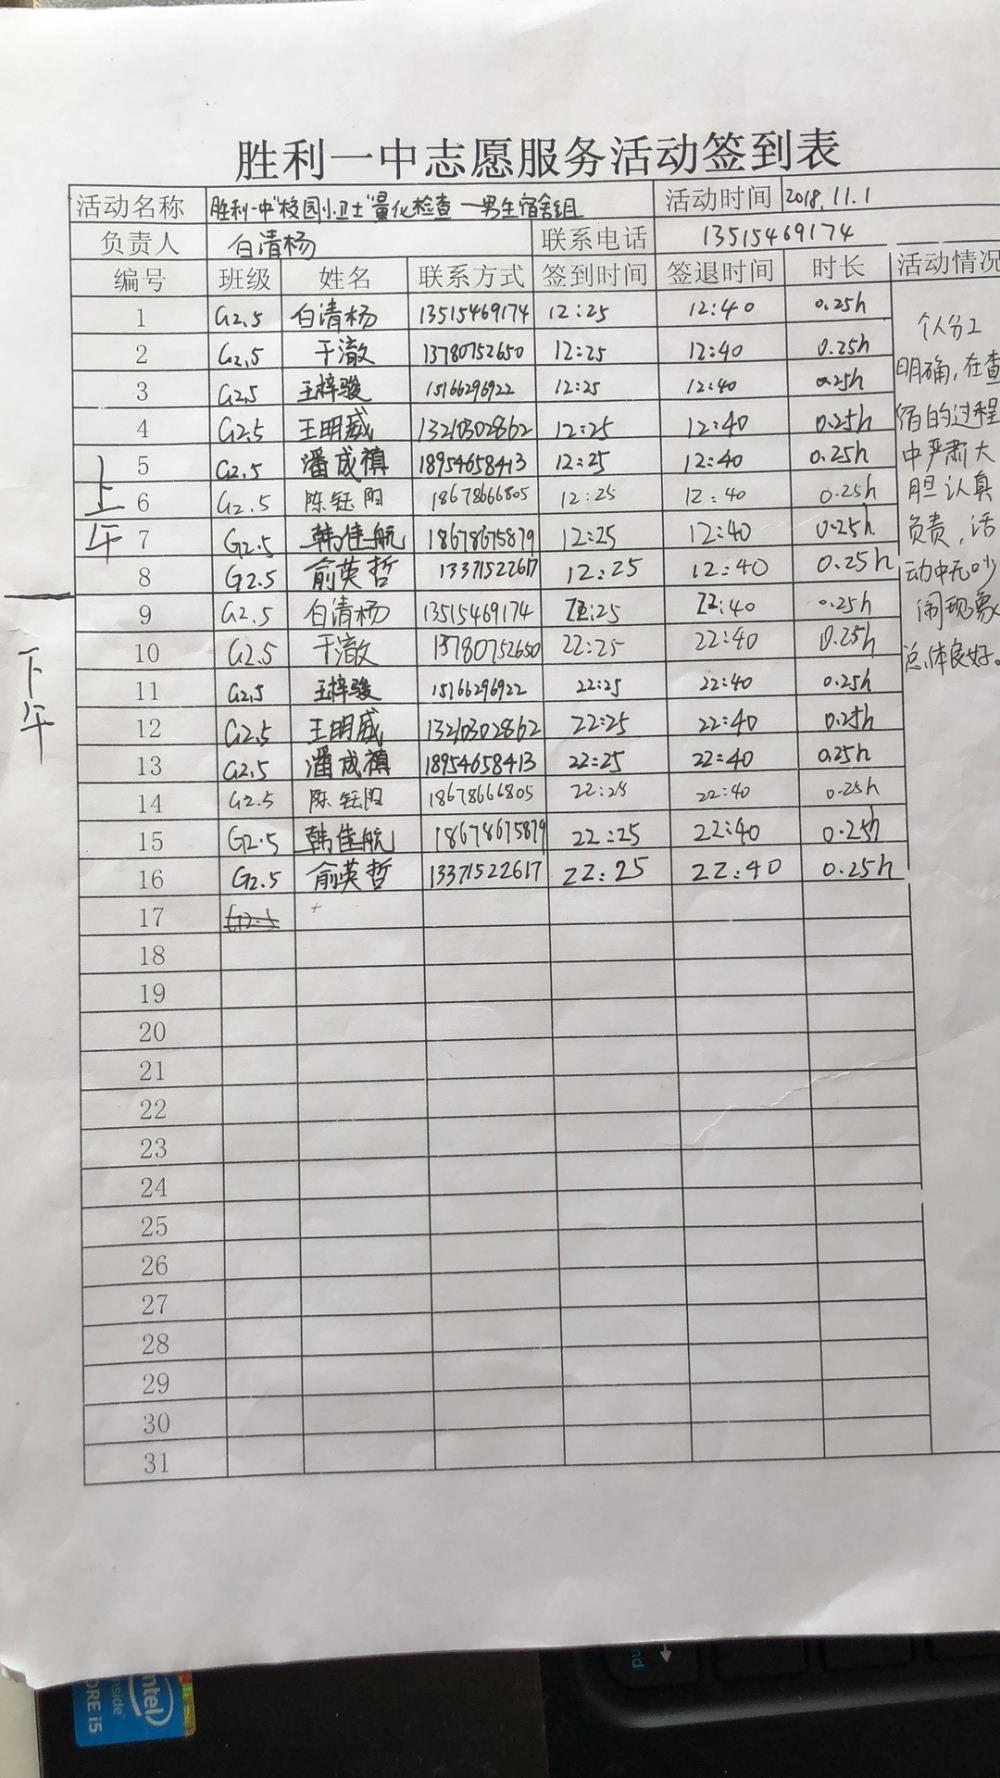 胜利一中志愿服务活动签到表
活动名称 胜利一中"校园小卫士"量化检查—男生宿舍组 活动时间 2018.11.1
负责人 白清杨 联系电话 13515469174
编号 班级 姓名 联系方式 签到时间 签退时间 时长 活动情况
1 G2.5 白清杨 13515469174 12:25 12:40 0.25h
2 G2.5 于澈 13780752650 12:25 12:40 0.25h
3 G2.5 王梓骏 15166296922 12:25 12:40 0.25h
4 G2.5 王明威 13210302862 12:25 12:40 0.25h
5 G2.5 潘成禛 18954658413 12:25 12:40 0.25h
6 G2.5 陈钰阳 18678666805 12:25 12:40 0.25h
7 G2.5 韩佳航 18678675879 12:25 12:40 0.25h
8 G2.5 俞英哲 13371522617 12:25 12:40 0.25h
9 G2.5 白清杨 13515469174 22:25 22:40 0.25h
10 G2.5 于澈 13780752650 22:25 22:40 0.25h
11 G2.5 王梓骏 15166296922 22:25 22:40 0.25h
12 G2.5 王明威 13210302862 22:25 22:40 0.25h
13 G2.5 潘成禛 18954658413 22:25 22:40 0.25h
14 G2.5 陈钰阳 18678666805 22:25 22:40 0.25h
15 G2.5 韩佳航 18678675879 22:25 22:40 0.25h
16 G2.5 俞英哲 13371522617 22:25 22:40 0.25h
17 G2.5
18
19
20
21
22
23
24
25
26
27
28
29
30
31
个人分工
明确,在查
宿的过程
中严肃大
胆认真
负责,活
动中无吵
闹现象
总体良好。
上午
下午
intel
inside
CORE i5